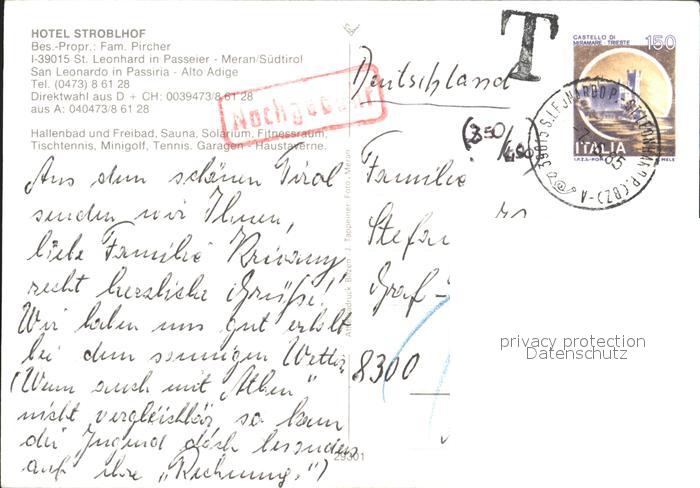 HOTEL STROBLHOF
Bes.-Propr.: Fam. Pircher
I-39015 St. Leonhard in Passeier - Meran/Südtirol
San Leonardo in Passiria - Alto Adige
Tel. (0473) 8 61 28
Direktwahl aus D + CH: 0039473/8 61 28
aus A: 040473/8 61 28
Hallenbad und Freibad, Sauna, Solarium, Fitnessraum,
Tischtennis, Minigolf, Tennis. Garagen - Haustaverne.
Nachgebühr
Aus dem schönen Tirol
senden wir Ihnen,
liebe Familie
recht herzliche Grüße!
Wir haben uns gut erholt
bei dem sonnigen Wetter
(Wenn auch mit „Athen"
nicht vergleichbar, so kam
die Jugend doch besonders
auf ihre „Rechnung.")
29301
T
Deutschland
Familie
Stefan
Graf-
8300
CASTELLO DI
MIRAMARE - TRIESTE
150
ITALIA
privacy protection
Datenschutz